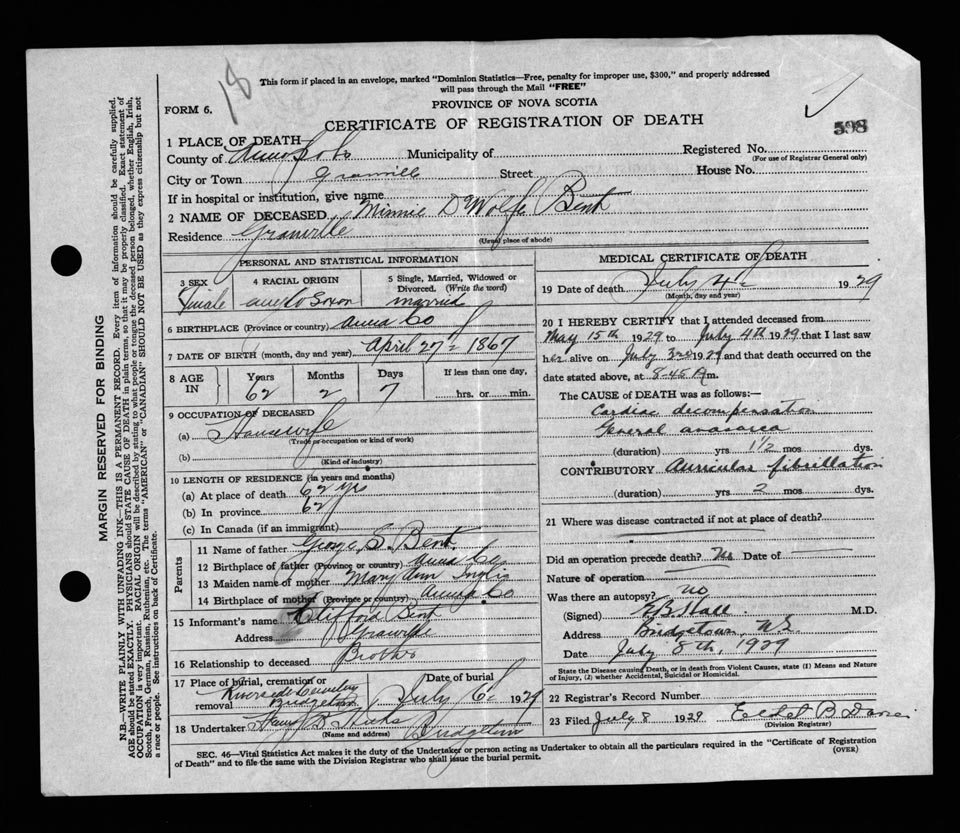 18
This form if placed in an envelope, marked "Dominion Statistics—Free, penalty for improper use, $300," and properly addressed
will pass through the Mail "FREE"
FORM 6.
PROVINCE OF NOVA SCOTIA
CERTIFICATE OF REGISTRATION OF DEATH
598
1 PLACE OF DEATH
County of Annapolis Municipality of Registered No.
(For use of Registrar General only)
City or Town Granville Street House No.
If in hospital or institution, give name
2 NAME OF DECEASED Minnie DWolfe Bent
Residence Granville
(Usual place of abode)
PERSONAL AND STATISTICAL INFORMATION
3 SEX 4 RACIAL ORIGIN 5 Single, Married, Widowed or
Divorced. (Write the word)
Female Anglo Saxon married
6 BIRTHPLACE (Province or country) Anna Co
7 DATE OF BIRTH (month, day and year) April 27 1867
8 AGE IN Years Months Days If less than one day,
62 2 7 hrs. or min.
9 OCCUPATION OF DECEASED
(a) Housewife
Trade or occupation or kind of work)
(b)
(Kind of industry)
10 LENGTH OF RESIDENCE (in years and months)
(a) At place of death 62 yrs
(b) In province 62
(c) In Canada (if an immigrant)
Parents
11 Name of father George S. Bent
12 Birthplace of father (Province or country) Anna Co
13 Maiden name of mother Mary Ann Inglis
14 Birthplace of mother (Province or country) Anna Co
15 Informant's name Clifford Bent
Address Granville
16 Relationship to deceased Brother
17 Place of burial, cremation or Date of burial
removal Riverside Cemetery
Bridgetown July 6 1929
18 Undertaker Harry B Hicks
(Name and address) Bridgetown
MEDICAL CERTIFICATE OF DEATH
19 Date of death July 4 1929
(Month, day and year)
20 I HEREBY CERTIFY that I attended deceased from
May 15th 1929 to July 4th 1929 that I last saw
her alive on July 3rd 1929 and that death occurred on the
date stated above, at 8-45 A m.
The CAUSE of DEATH was as follows:—
Cardiac decompensation
General anasarca
(duration) yrs 1½ mos dys.
CONTRIBUTORY Auricular fibrillation
(duration) yrs 2 mos dys.
21 Where was disease contracted if not at place of death?
Did an operation precede death? No Date of
Nature of operation
Was there an autopsy? No
(Signed) Hall M.D.
Address Bridgetown, NS
Date July 8th, 1929
State the Disease causing Death, or in death from Violent Causes, state (1) Means and Nature
of Injury, (2) whether Accidental, Suicidal or Homicidal.
22 Registrar's Record Number
23 Filed July 8 1929 B
(Division Registrar)
SEC. 46—Vital Statistics Act makes it the duty of the Undertaker or person acting as Undertaker to obtain all the particulars required in the "Certificate of Registration
of Death" and to file the same with the Division Registrar who shall issue the burial permit.
(OVER)
MARGIN RESERVED FOR BINDING
N.B.—WRITE PLAINLY WITH UNFADING INK—THIS IS A PERMANENT RECORD. Every item of information should be carefully supplied.
AGE should be stated EXACTLY. PHYSICIANS should STATE CAUSE OF DEATH in plain terms, so that it may be properly classified. Exact statement of
OCCUPATION is very important. RACIAL ORIGIN will be described by stating to what people or tongue the deceased person belonged, whether English, Irish,
Scotch, French, German, Russian, Ruthenian, etc. The terms "AMERICAN" or "CANADIAN" SHOULD NOT BE USED as they express citizenship but not
a race or people. See instructions on back of Certificate.